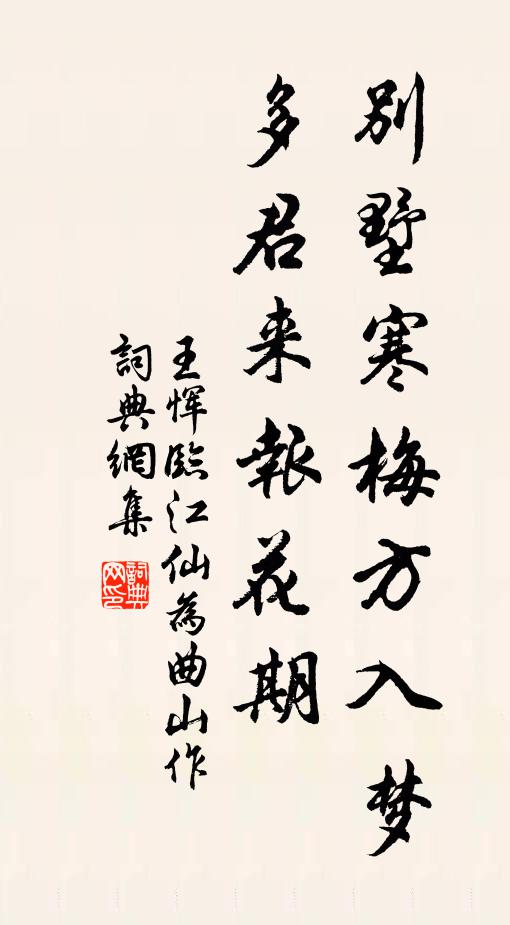 別墅寒梅方入梦
多君来報花期
王恽臨江仙為曲山作
詞典網集
詞典网印